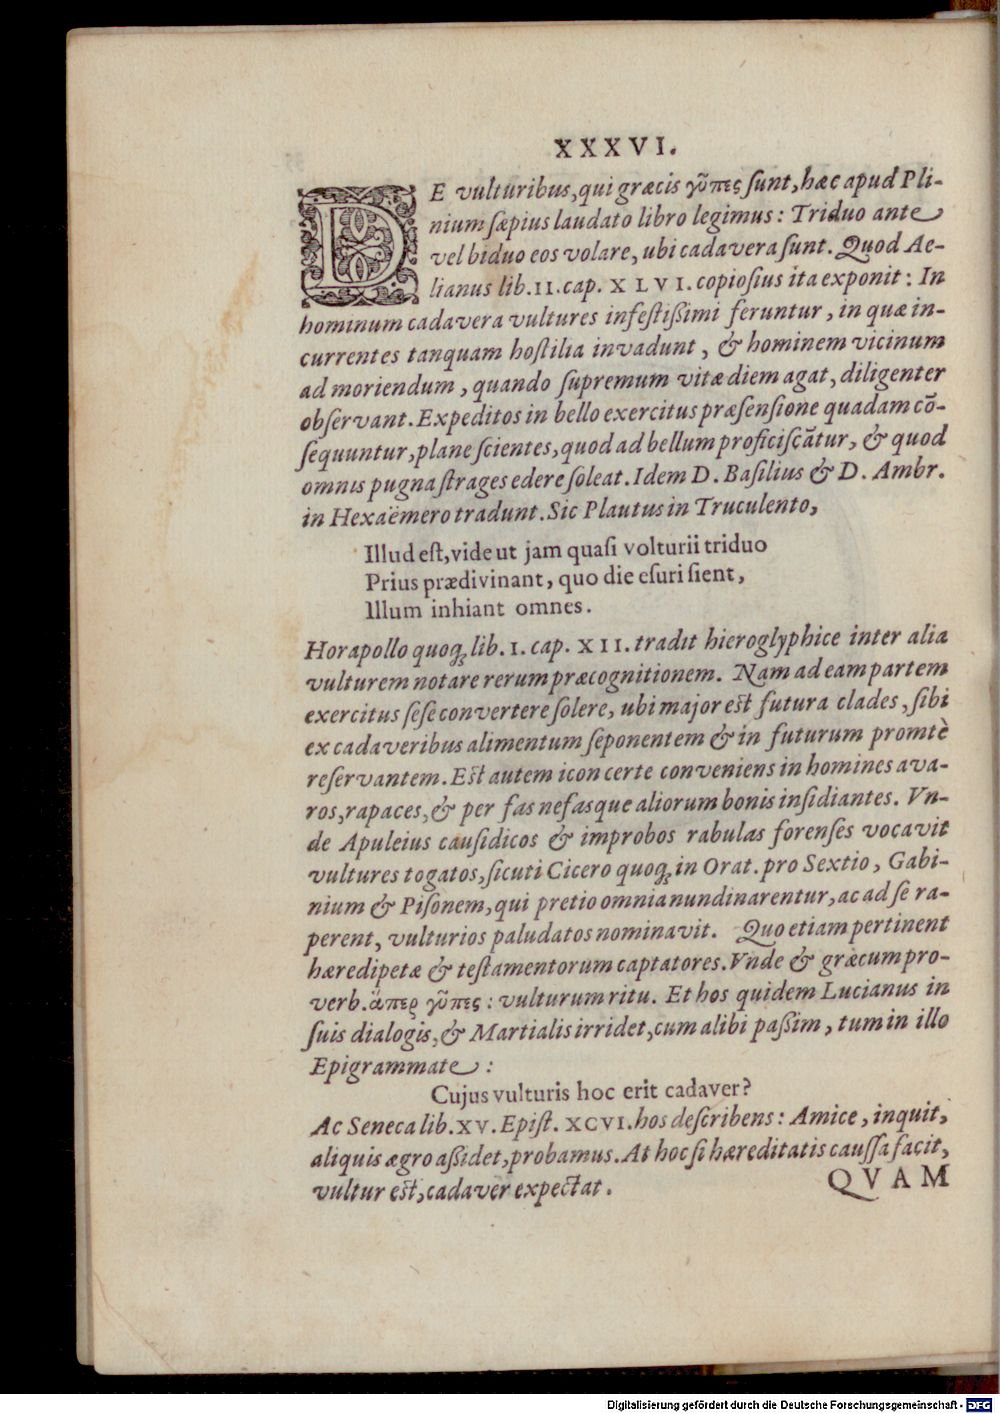 XXXVI.
DE vulturibus, qui græcis γῦπες ſunt, hæc apud Pli-
nium ſæpius laudato libro legimus: Triduo ante
vel biduo eos volare, ubi cadavera ſunt. Quod Ae-
lianus lib. II. cap. XLVI. copioſius ita exponit: In
hominum cadavera vultures infeſtißimi feruntur, in quæ in-
currentes tanquam hoſtilia invadunt, & hominem vicinum
ad moriendum, quando ſupremum vitæ diem agat, diligenter
obſervant. Expeditos in bello exercitus præſenſione quadam cō-
ſequuntur, plane ſcientes, quod ad bellum proficiſcātur, & quod
omnis pugna ſtrages edere ſoleat. Idem D. Baſilius & D. Ambr.
in Hexaëmero tradunt. Sic Plautus in Truculento,
Illud eſt, vide ut jam quaſi volturii triduo
Prius prædivinant, quo die eſuri ſient,
Illum inhiant omnes.
Horapollo quoq; lib. I. cap. XII. tradit hieroglyphice inter alia
vulturem notare rerum præcognitionem. Nam ad eam partem
exercitus ſeſe convertere ſolere, ubi major eſt futura clades, ſibi
ex cadaveribus alimentum ſeponentem & in futurum promtè
reſervantem. Eſt autem icon certe conveniens in homines ava-
ros, rapaces, & per fas nefasque aliorum bonis inſidiantes. Vn-
de Apuleius cauſidicos & improbos rabulas forenſes vocavit
vultures togatos, ſicuti Cicero quoq; in Orat. pro Sextio, Gabi-
nium & Piſonem, qui pretio omnia nundinarentur, ac ad ſe ra-
perent, vulturios paludatos nominavit. Quo etiam pertinent
hæredipetæ & teſtamentorum captatores. Vnde & græcum pro-
verb. ἅπερ γῦπες: vulturum ritu. Et hos quidem Lucianus in
ſuis dialogis, & Martialis irridet, cum alibi paßim, tum in illo
Epigrammate:
Cujus vulturis hoc erit cadaver?
Ac Seneca lib. XV. Epiſt. XCVI. hos deſcribens: Amice, inquit,
aliquis ægro aßidet, probamus. At hoc ſi hæreditatis cauſſa facit,
vultur eſt, cadaver expectat.
QVAM
Digitalisierung gefördert durch die Deutsche Forschungsgemeinschaft - DFG